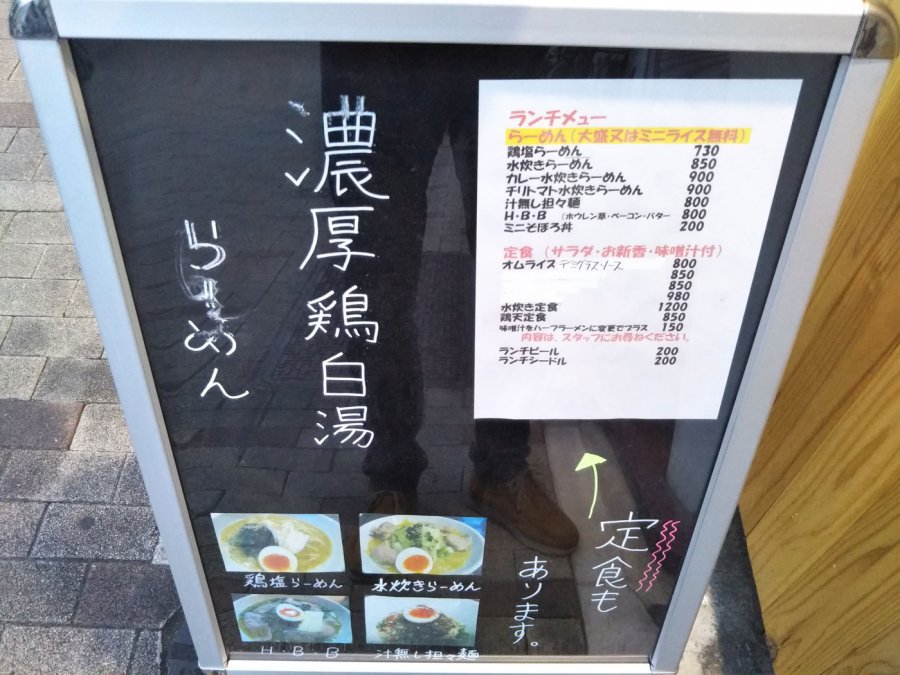 濃厚鶏白湯
らーめん
ランチメニュー
らーめん(大盛又はミニライス無料)
鶏塩らーめん 730
水炊きらーめん 850
カレー水炊きらーめん 900
チリトマト水炊きらーめん 900
汁無し担々麺 800
H・B・B (ホウレン草・ベーコン・バター 800
ミニそぼろ丼 200
定食 (サラダ・お新香・味噌汁付)
オムライス デミグラスソース 800
850
850
980
水炊き定食 1200
鶏天定食 850
味噌汁をハーフラーメンに変更でプラス 150
内容は、スタッフにお尋ねください。
ランチビール 200
ランチシードル 200
定食も
あります。
鶏塩らーめん
水炊きらーめん
H・B・B
汁無し担々麺